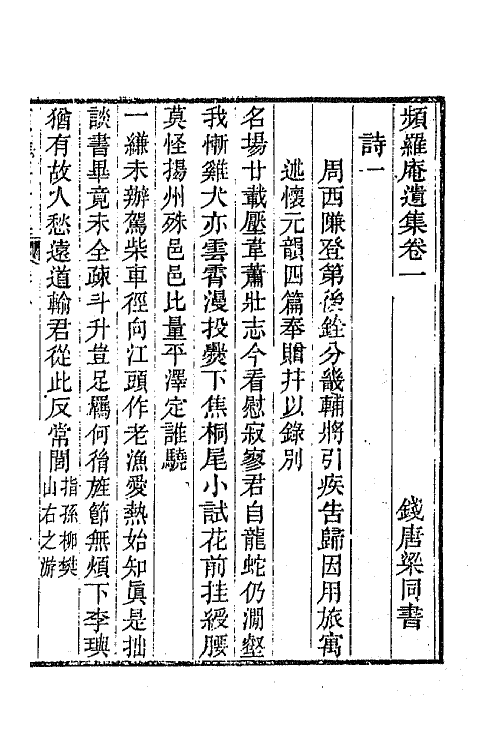 頻羅庵遺集卷一
錢唐梁同書
詩一
周西㒺登第後銓分畿輔將引疾告歸因用旅寓
述懷元韻四篇奉贈幷以錄別
名場廿載壓韋蕭壯志今看慰寂寥君自龍蛇仍澗壑
我慚雞犬亦雲霄漫投㸑下焦桐尾小試花前挂綬腰
莫怪揚州殊邑邑比量平澤定誰驍
一縑未辦駕柴車徑向江頭作老漁愛熱始知眞是拙
談書畢竟未全疎斗升豈足羈何㣲旌節無煩下李璵
猶有故人愁遠道輸君從此反常閭
指孫柳樊
山右之游